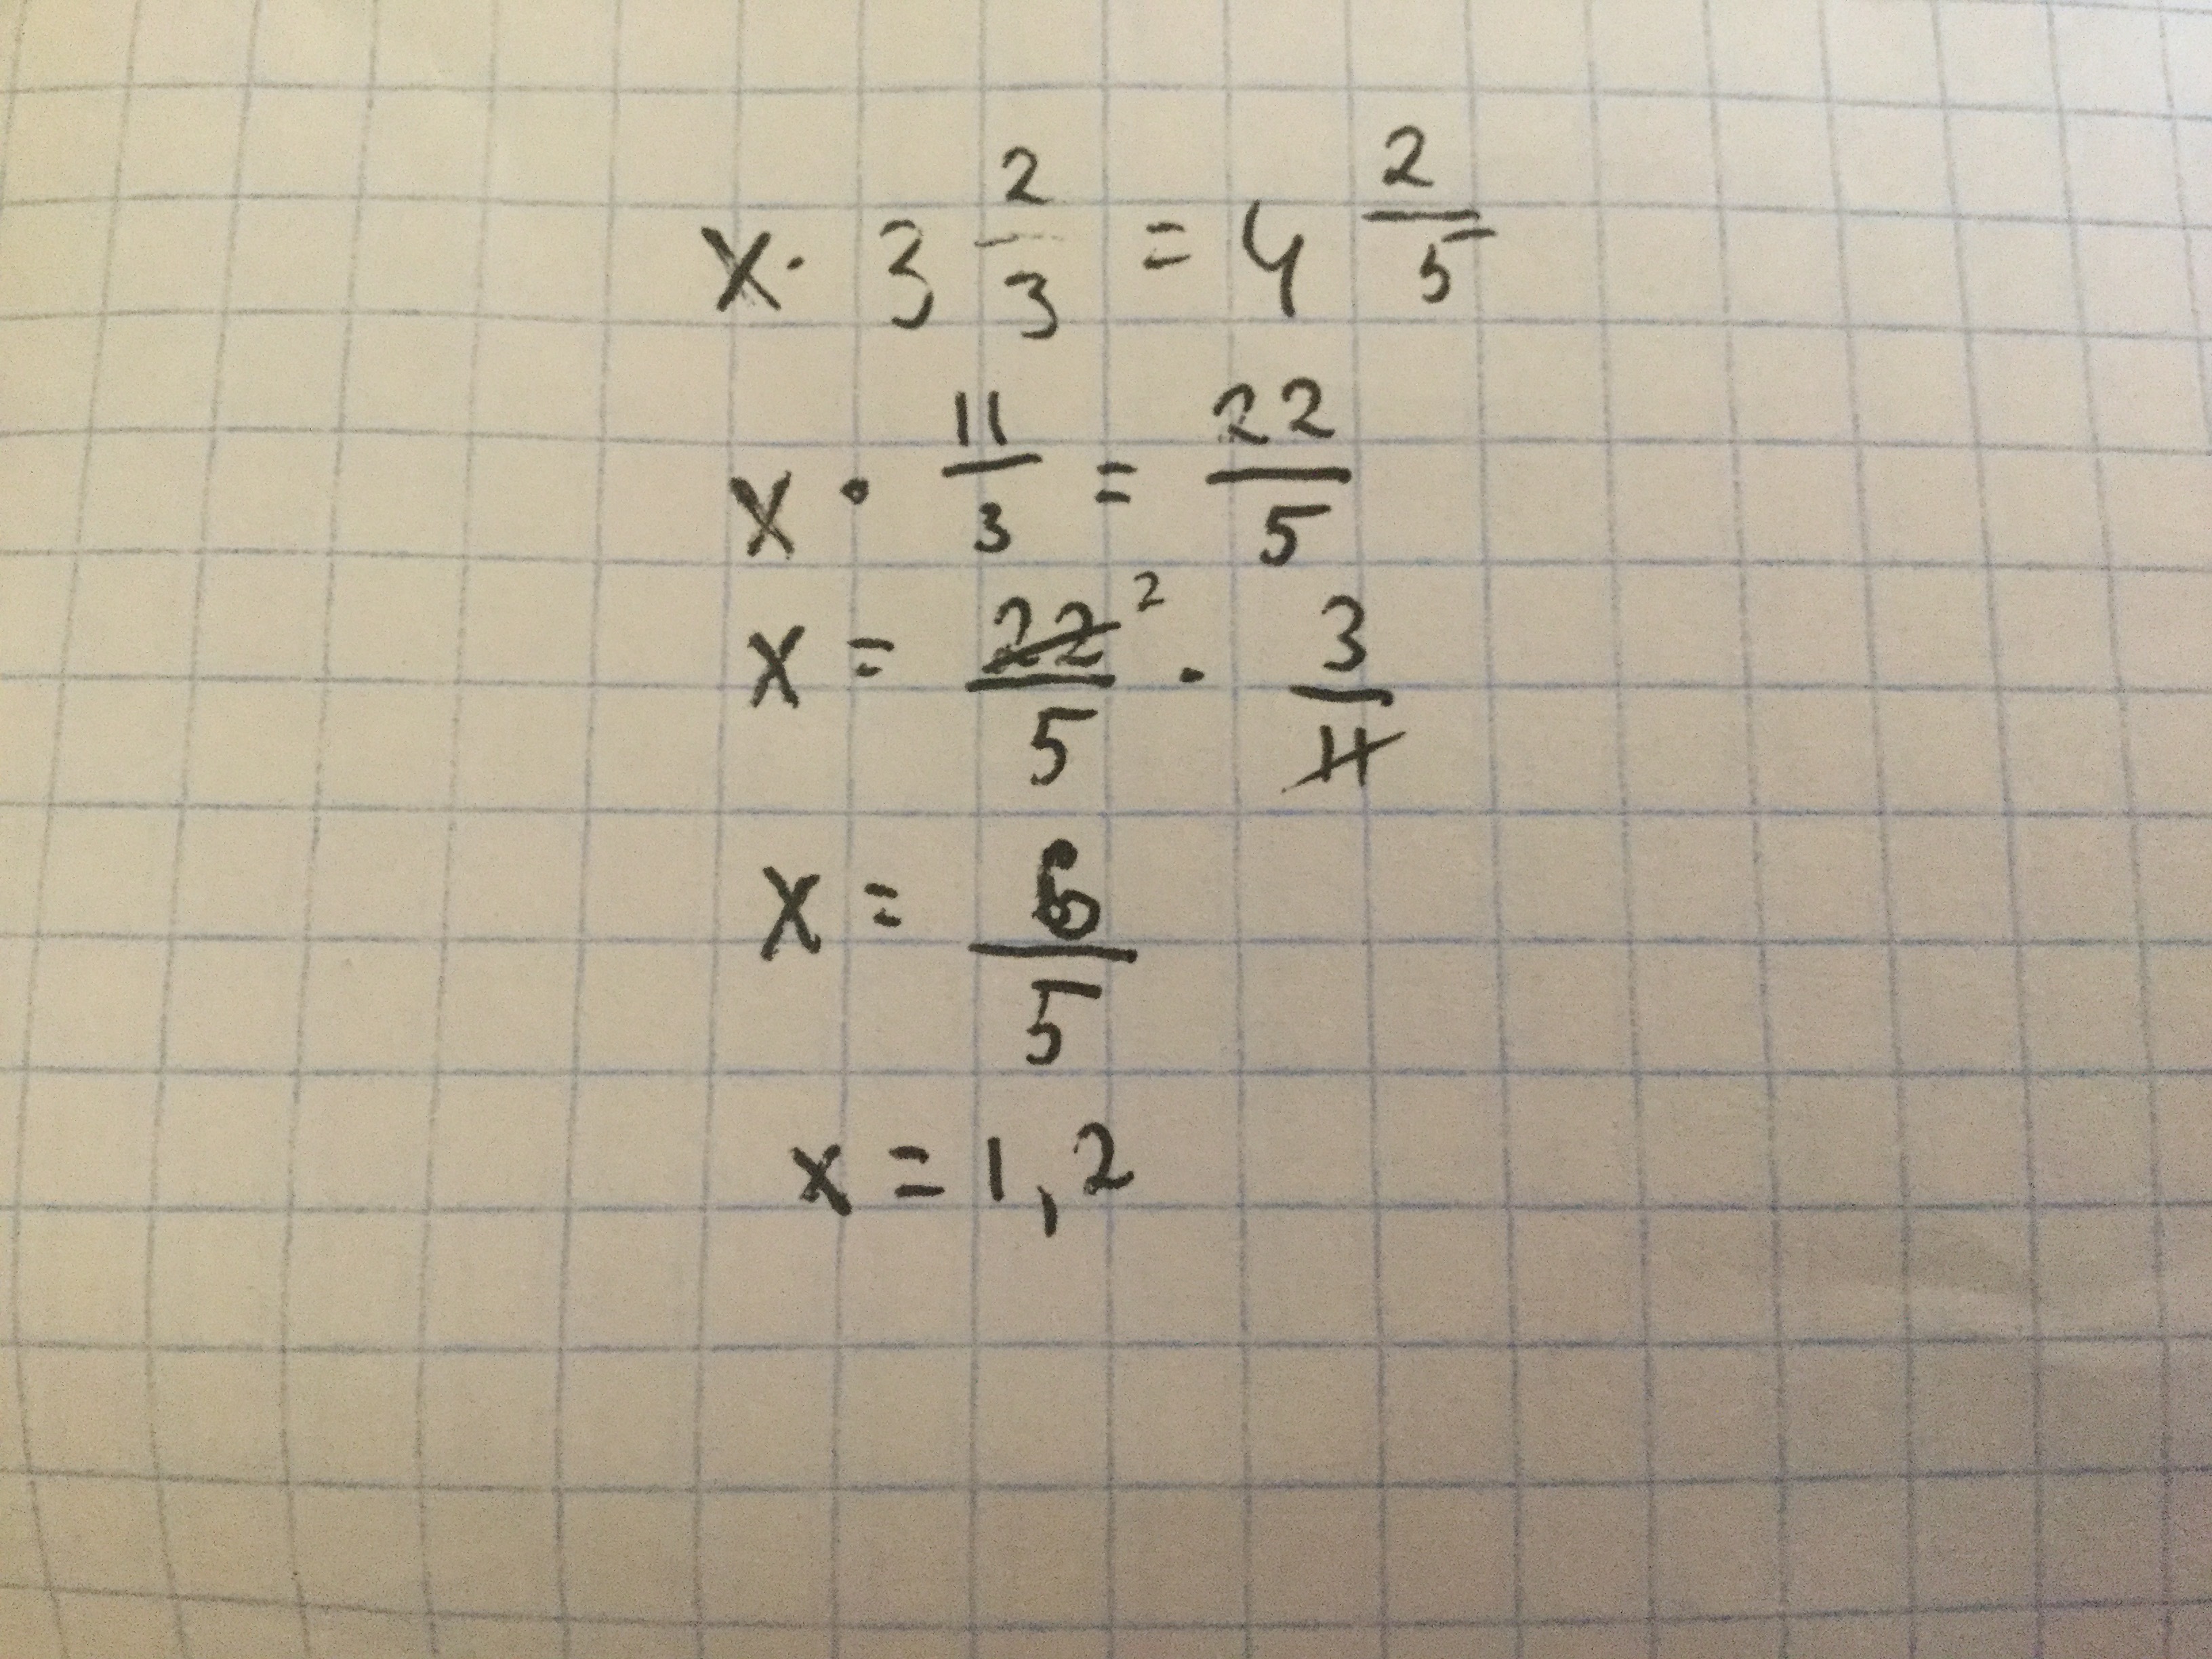 x · 3 2/3 = 4 2/5
x · 11/3 = 22/5
x = 22/5 2 · 3/11
x = 6/5
x = 1,2